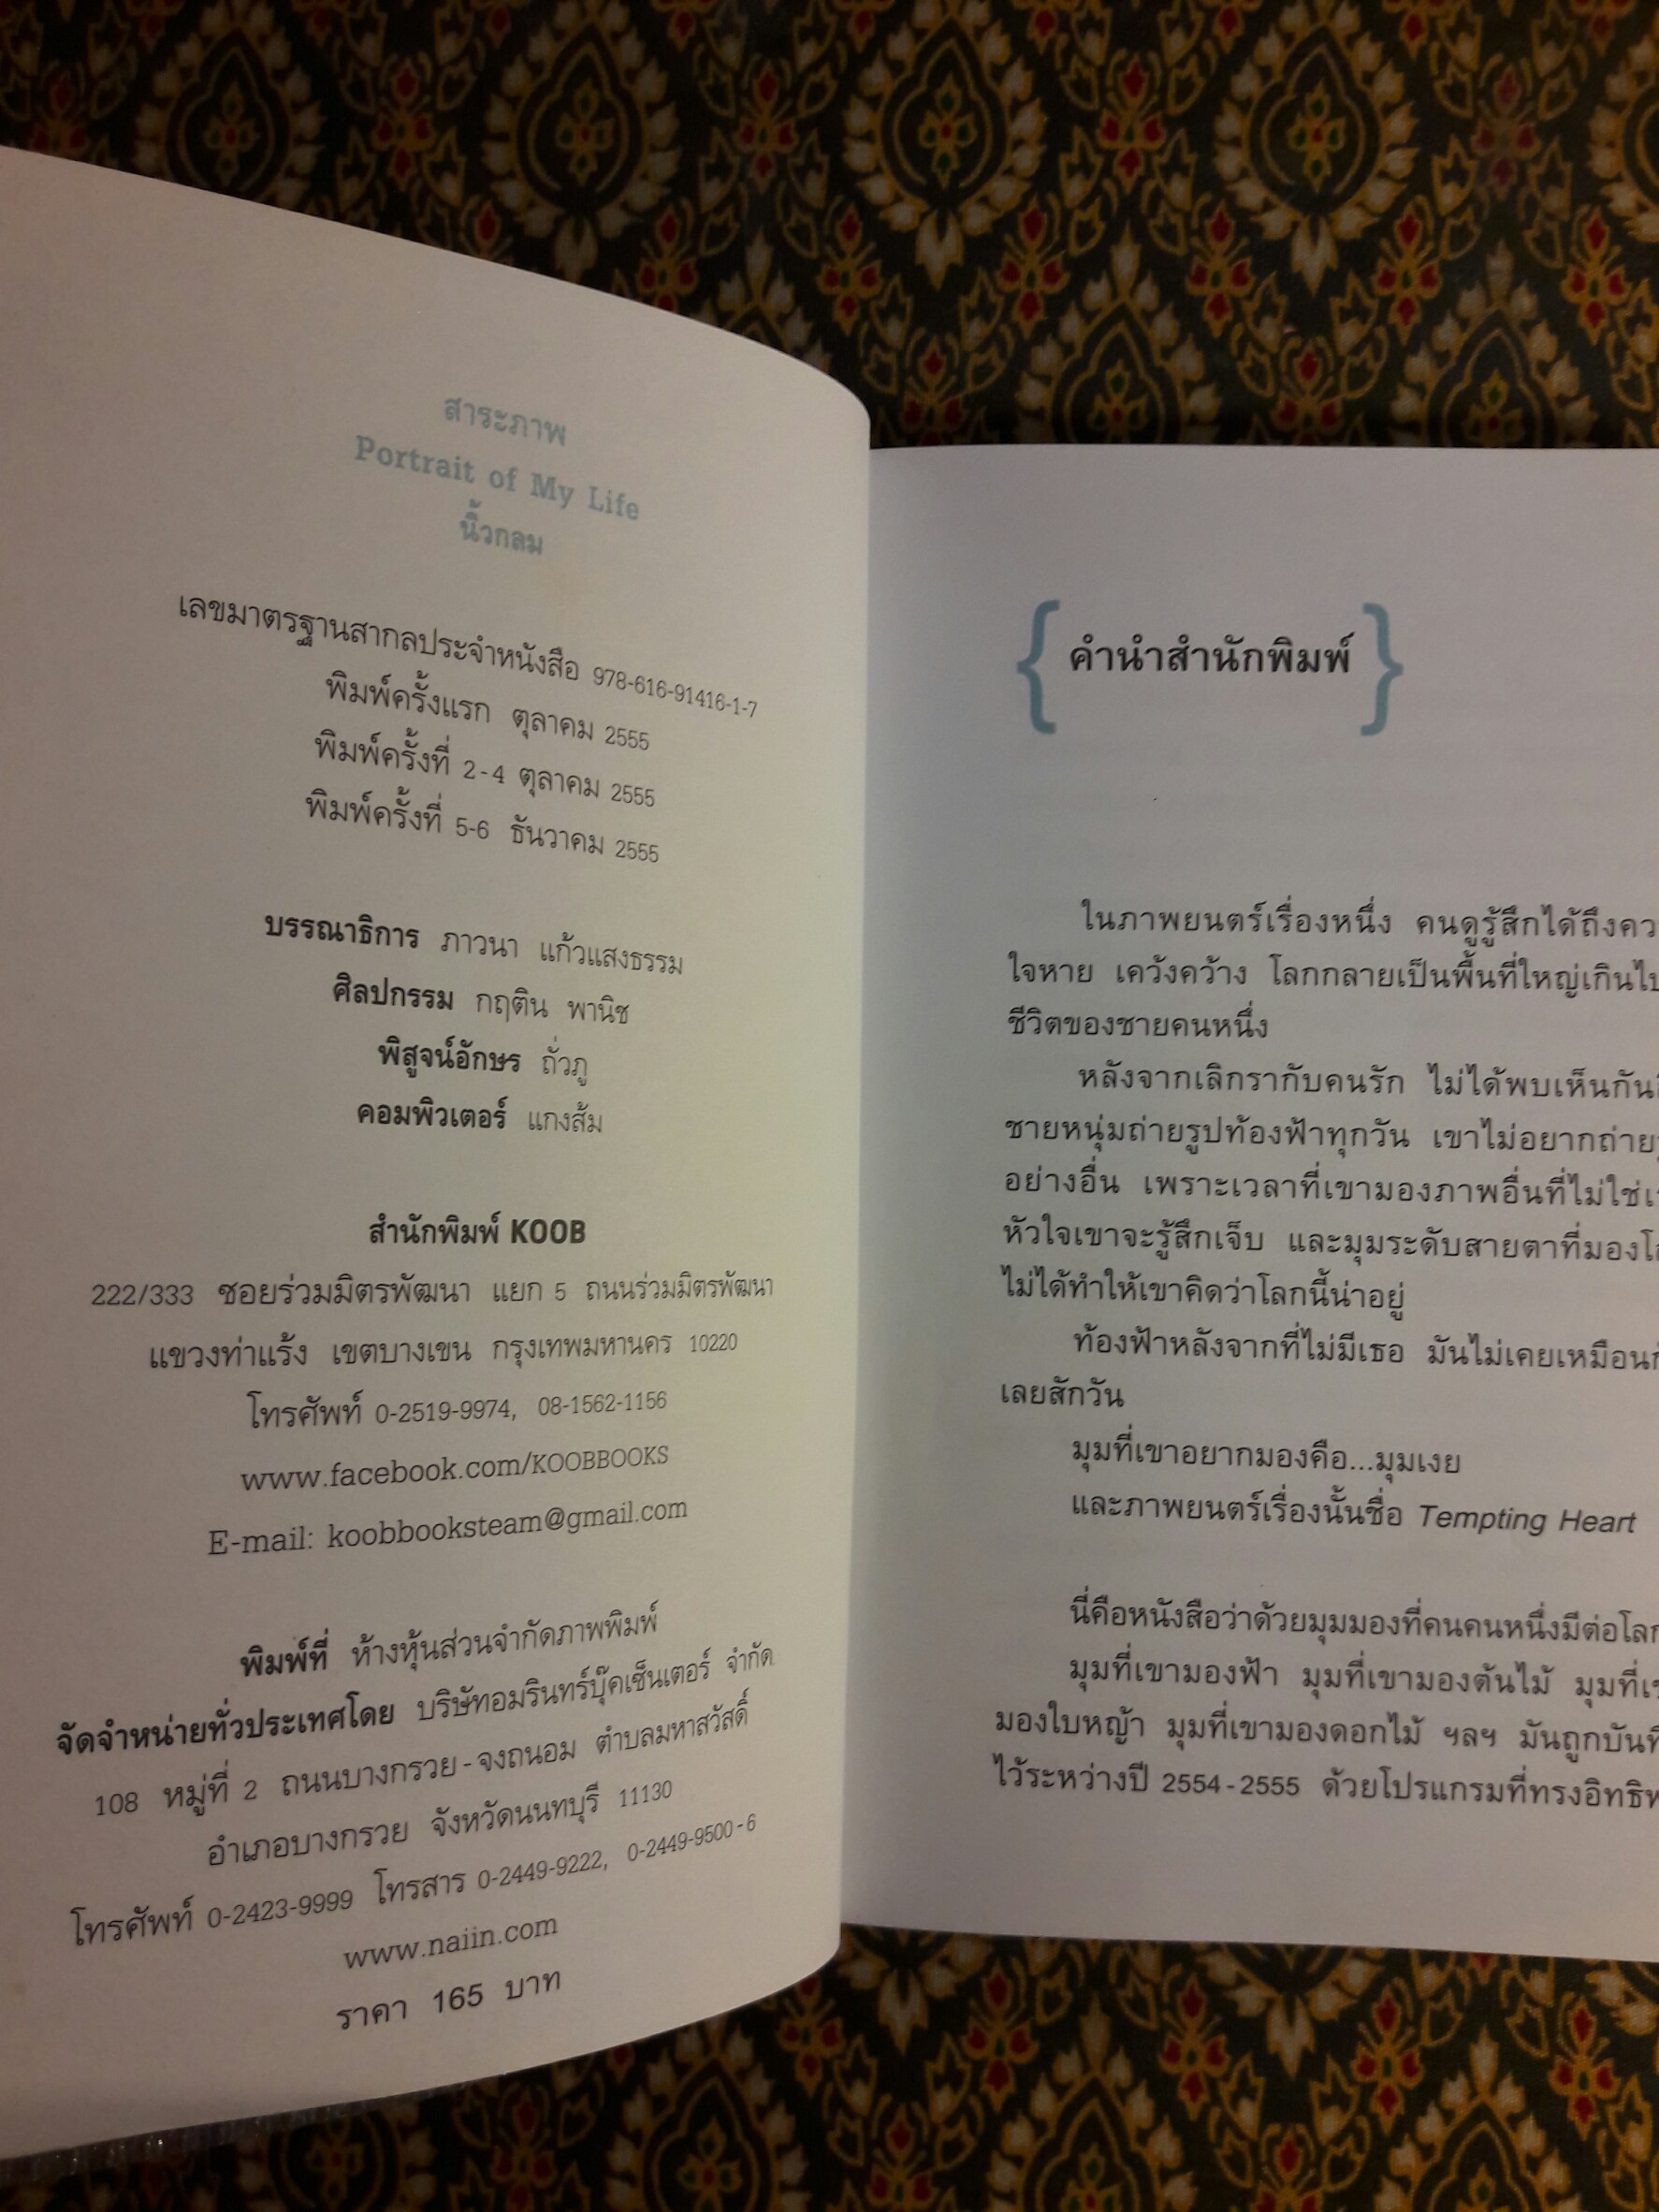 สาระภาพ
Portrait of My Life
นิ้วกลม
เลขมาตรฐานสากลประจำหนังสือ 978-616-91416-1-7
พิมพ์ครั้งแรก ตุลาคม 2555
พิมพ์ครั้งที่ 2-4 ตุลาคม 2555
พิมพ์ครั้งที่ 5-6 ธันวาคม 2555
บรรณาธิการ ภาวนา แก้วแสงธรรม
ศิลปกรรม กฤติน พานิช
พิสูจน์อักษร ถั่วภู
คอมพิวเตอร์ แกงส้ม
สำนักพิมพ์ KOOB
222/333 ซอยร่วมมิตรพัฒนา แยก 5 ถนนร่วมมิตรพัฒนา
แขวงท่าแร้ง เขตบางเขน กรุงเทพมหานคร 10220
โทรศัพท์ 0-2519-9974, 08-1562-1156
www.facebook.com/KOOBBOOKS
E-mail: koobbooksteam@gmail.com
พิมพ์ที่ ห้างหุ้นส่วนจำกัดภาพพิมพ์
จัดจำหน่ายทั่วประเทศโดย บริษัทอมรินทร์บุ๊คเซ็นเตอร์ จำกัด
108 หมู่ที่ 2 ถนนบางกรวย-จงถนอม ตำบลมหาสวัสดิ์
อำเภอบางกรวย จังหวัดนนทบุรี 11130
โทรศัพท์ 0-2423-9999 โทรสาร 0-2449-9222, 0-2449-9500-6
www.naiin.com
ราคา 165 บาท
{ คำนำสำนักพิมพ์ }
ในภาพยนตร์เรื่องหนึ่ง คนดูรู้สึกได้ถึง
ใจหาย เคว้งคว้าง โลกกลายเป็นพื้นที่ใหญ่เกินไป
ชีวิตของชายคนหนึ่ง
หลังจากเลิกรากับคนรัก ไม่ได้พบเห็นกัน
ชายหนุ่มถ่ายรูปท้องฟ้าทุกวัน เขาไม่อยากถ่าย
อย่างอื่น เพราะเวลาที่เขามองภาพอื่นที่ไม่ใช่
หัวใจเขาจะรู้สึกเจ็บ และมุมระดับสายตาที่มอง
ไม่ได้ทำให้เขาคิดว่าโลกนี้น่าอยู่
ท้องฟ้าหลังจากที่ไม่มีเธอ มันไม่เคยเหมือน
เลยสักวัน
มุมที่เขาอยากมองคือ...มุมเงย
และภาพยนตร์เรื่องนั้นชื่อ Tempting Heart
นี่คือหนังสือว่าด้วยมุมมองที่คนคนหนึ่งมีต่อโลก
มุมที่เขามองฟ้า มุมที่เขามองต้นไม้ มุมที่
มองใบหญ้า มุมที่เขามองดอกไม้ ฯลฯ มันถูก
ไว้ระหว่างปี 2554-2555 ด้วยโปรแกรมที่ทรง